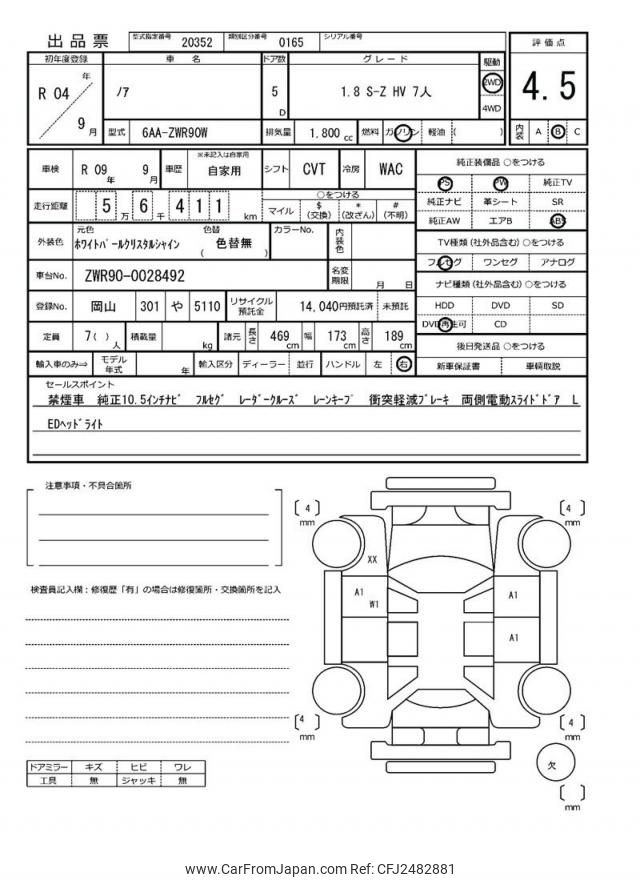 出品票 型式指定番号 20352 類別区分番号 0165 シリアル番号
評価点
4.5
内装 A B C
初年度登録 車名 ドア数 グレード 駆動
R 04 年 9 月
ノア 5 D 1.8 S-Z HV 7人 2WD 4WD
型式 6AA-ZWR90W 排気量 1,800 cc 燃料 ガソリン 軽油 ( )
車検 R 09 年 9 月 車歴 ※未記入は自家用 自家用 シフト CVT 冷房 WAC
走行距離 5 万 6 千 4 1 1 km
○をつける
マイル $ (交換) * (改ざん) # (不明)
外装色 元色 ホワイトパールクリスタルシャイン 色替 ( 色替無 ) カラーNo. 内装色
車台No. ZWR90-0028492 名変期限 月 日
登録No. 岡山 301 や 5110 リサイクル預託金 14,040円預託済 未預託
定員 7( ) 人 積載量 kg 諸元 長さ 469 cm 幅 173 cm 高さ 189 cm
輸入車のみ⇒ モデル年式 年 輸入区分 ディーラー 並行 ハンドル 左 右
純正装備品 ○をつける
PS PW 純正TV
純正ナビ 革シート SR
純正AW エアB ABS
TV種類 (社外品含む) ○をつける
フルセグ ワンセグ アナログ
ナビ種類 (社外品含む) ○をつける
HDD DVD SD
DVD再生可 CD
後日発送品 ○をつける
新車保証書 車輌取説
セールスポイント
禁煙車 純正10.5インチナビ フルセグ レーダークルーズ レーンキープ 衝突軽減ブレーキ 両側電動スライドドア L
EDヘッドライト
注意事項・不具合箇所
検査員記入欄：修復歴「有」の場合は修復箇所・交換箇所を記入
ドアミラー キズ ヒビ ワレ
工具 無 ジャッキ 無
[ 4 ] mm
[ 4 ] mm
XX
A1
W1
A1
A1
[ 4 ] mm
[ 4 ] mm
欠
[ ] mm
www.CarFromJapan.com Ref: CFJ2482881